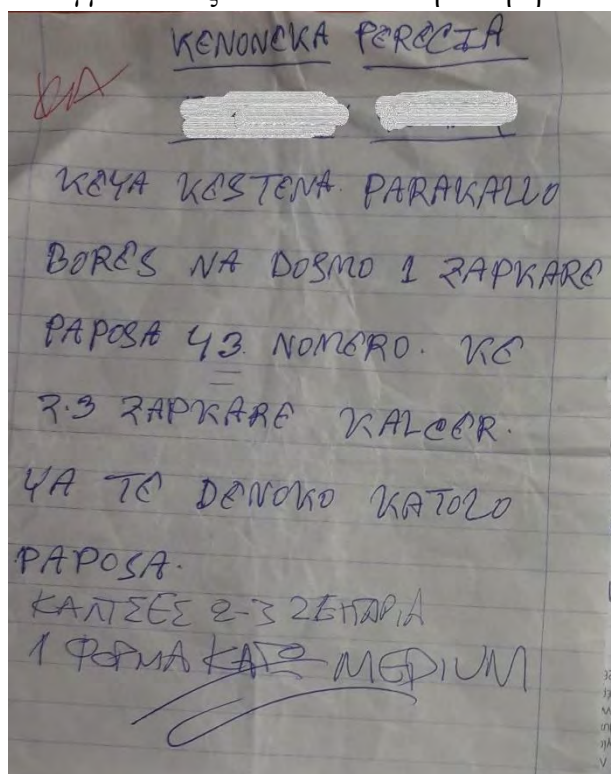 KENONEKA PERECIA
KEYA KESTENA. PARAKALLO
BORES NA DOSMO 1 ZAPKARE
PAPOSA 43 NOMERO. KE
2.3 ZAPKARE KALCER.
YA TE DENOKO KATOLO
PAPOSA.
ΚΑΛΤΣΕΣ 2-3 ΖΕΥΓΑΡΙΑ
1 ΦΟΡΜΑ ΚΑΤΩ MEDIUM